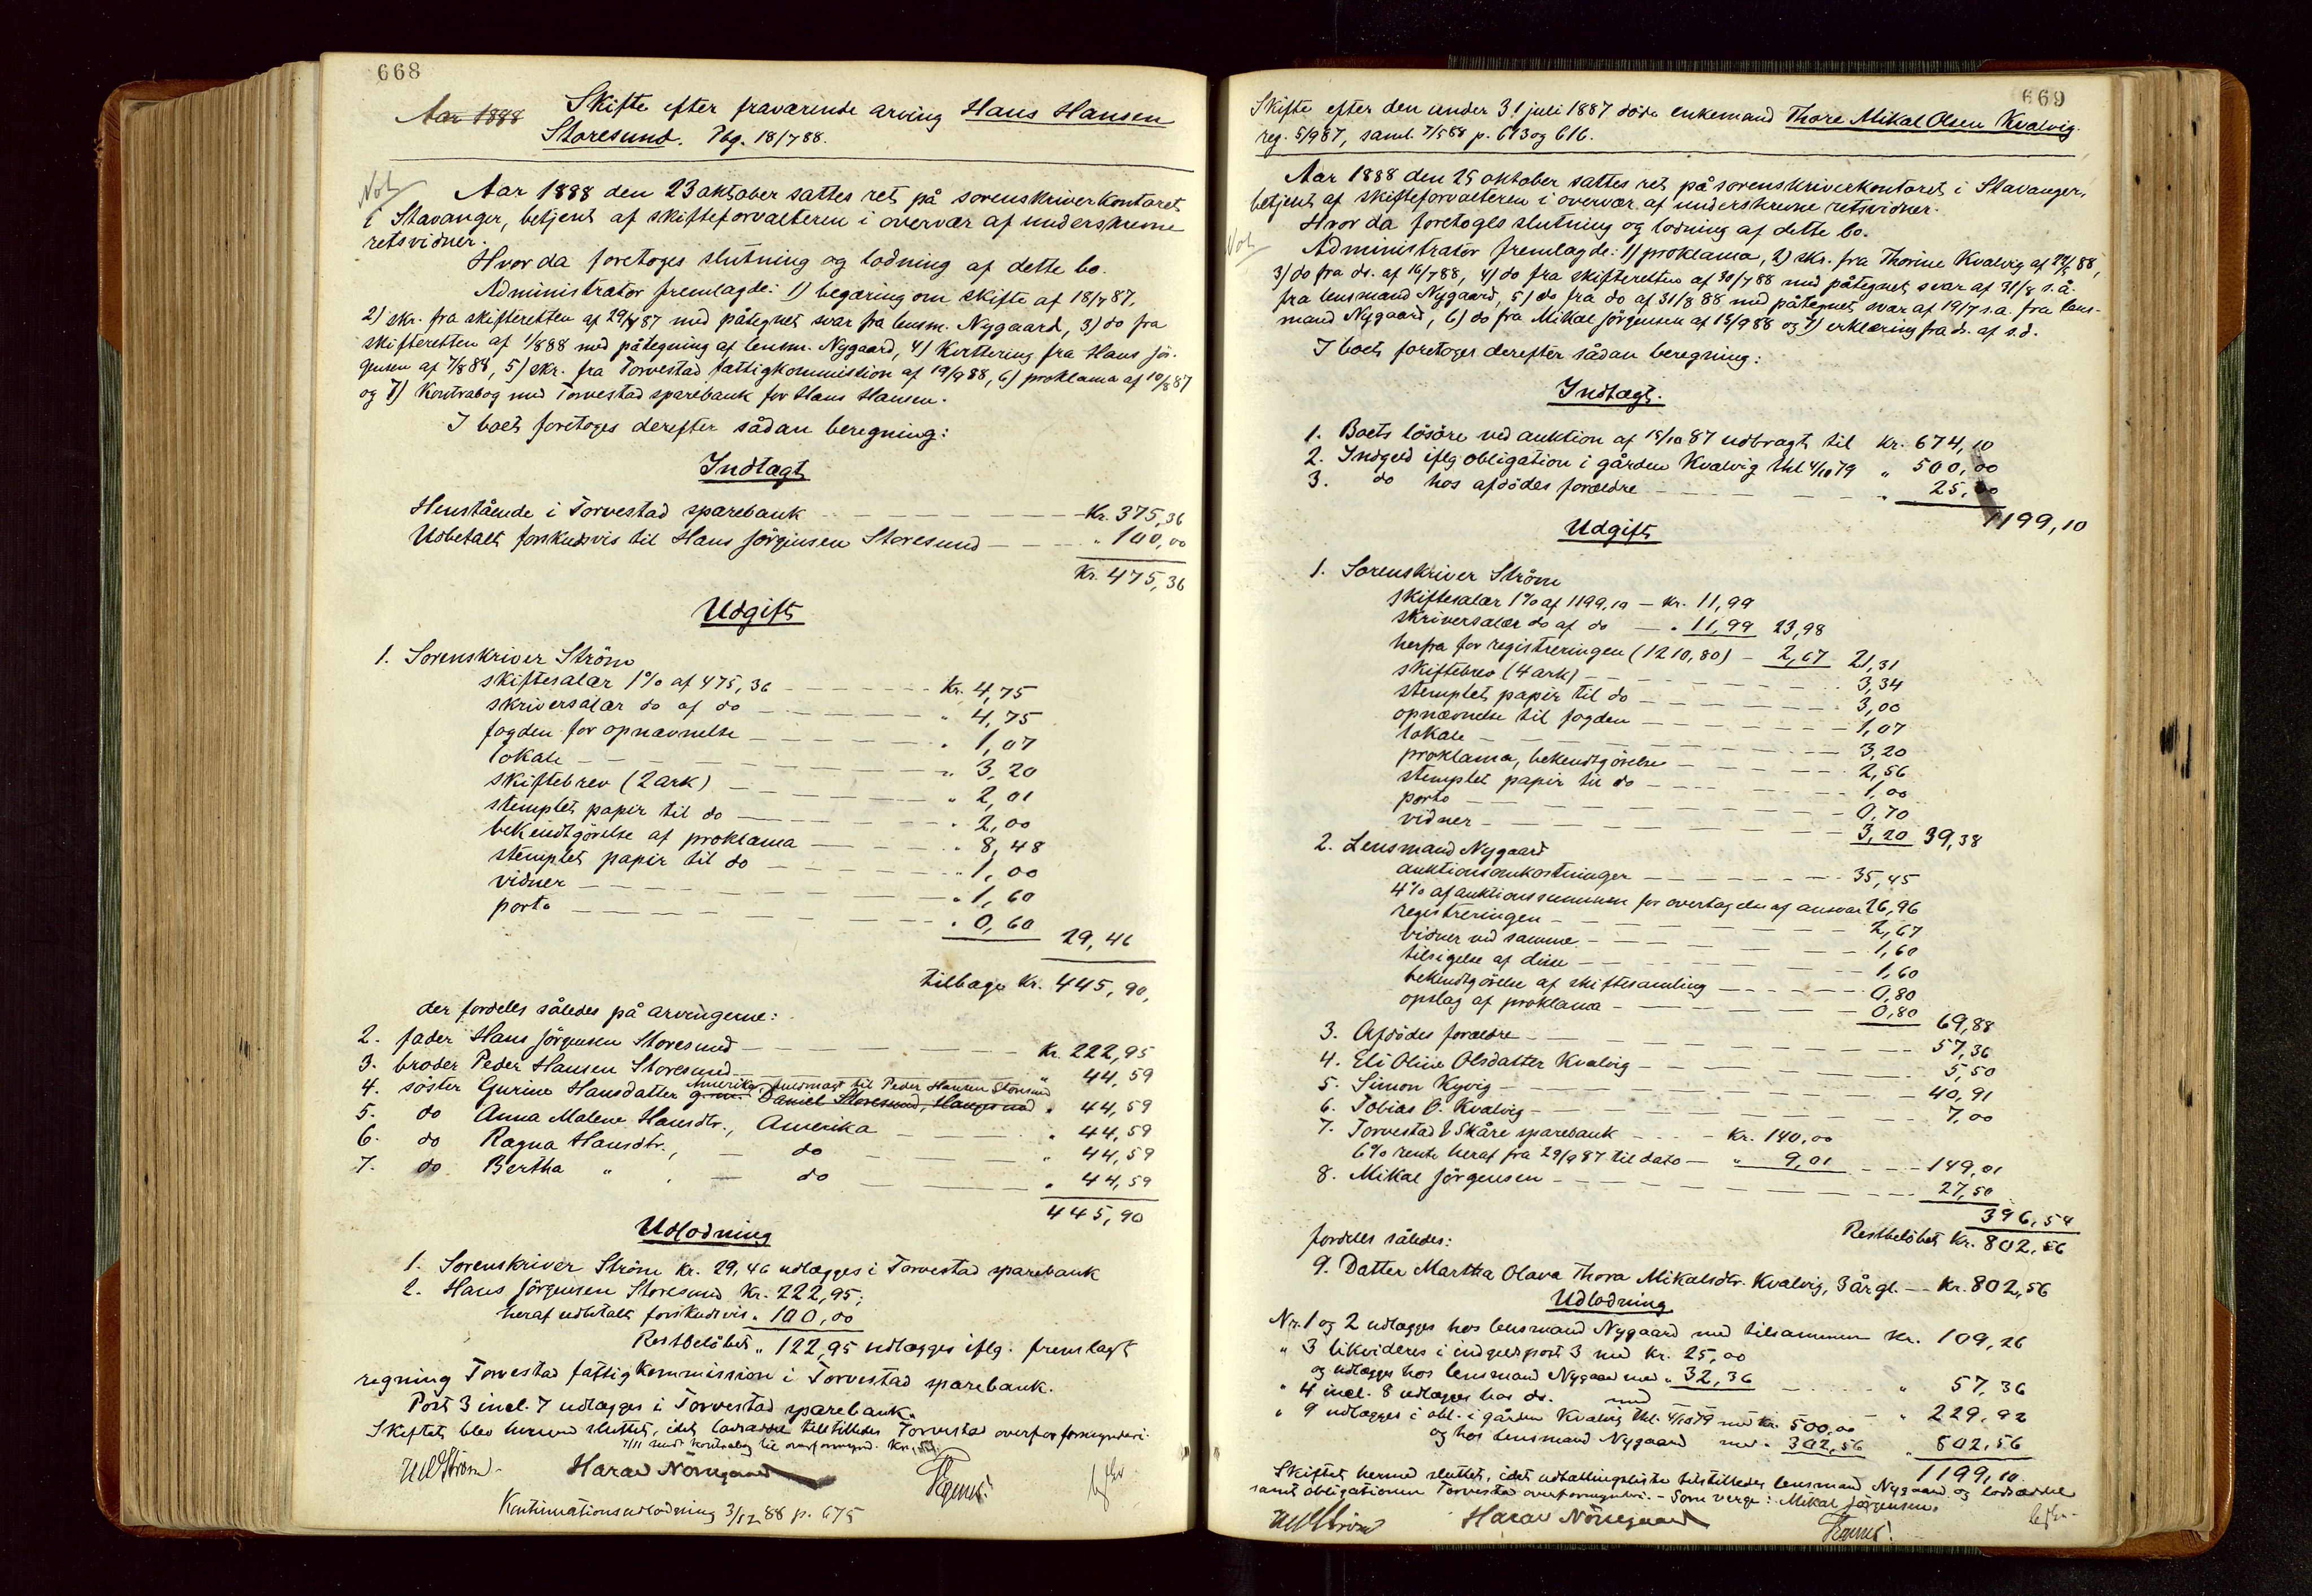 668
Aar 1888 Skifte efter fraværende arving Hans Hansen
Storesund. Pbg. 18/7 88.
Not
Aar 1888 den 23 oktober sattes ret på sorenskriverkontoret
i Stavanger, betjent af skifteforvalteren i overvær af underskrevne
retsvidner.
Hvor da foretoges slutning og lodning af dette bo.
Administrator fremlagde: 1) begæring om skifte af 18/7 87,
2) skr. fra skifteretten af 29/7 87 med påtegnet svar fra lensm. Nygaard, 3) do fra
skifteretten af 1/8 88 med påtegning af lensm. Nygaard, 4) kvittering fra Hans Jör-
gensen af 7/8 88, 5) skr. fra Torvestad fattigkommission af 19/9 88, 6) proklama af 10/8 87
og 7) Kontrabog med Torvestad sparebank for Hans Hansen.
I boet foretoges derefter sådan beregning:
Indtægt
Henstående i Torvestad sparebank Kr. 375,36
Udbetalt forskudsvis til Hans Jörgensen Storesund " 100,00
Kr. 475,36
Udgift
1. Sorenskriver Ström
skiftesalær 1% af 475,36 Kr. 4,75
skriversalær do af do " 4,75
fogden for opnævnelse " 1,07
lokale " 3,20
skiftebrev (2 ark) " 2,01
stemplet papir til do " 2,00
bekendtgörelse af proklama " 8,48
stemplet papir til do " 1,00
vidner " 1,60
porto " 0,60 29,46
tilbage Kr. 445,90,
der fordeles således på arvingerne:
2. fader Hans Jörgensen Storesund Kr. 222,95
3. broder Peder Hansen Storesund " 44,59
Amerika, fuldmagt til Peder Hansen Storesund
4. söster Gurine Hansdatter g. m. Daniel Storesund, Haugesund " 44,59
5. do Anna Malene Hansdtr., Amerika " 44,59
6. do Ragna Hansdtr., do " 44,59
7. do Bertha " , do " 44,59
445,90
Udlodning
1. Sorenskriver Ström Kr. 29,46 udlægges i Torvestad sparebank
2. Hans Jörgensen Storesund Kr. 222,95;
heraf udbetalt forskudsvis " 100,00
Restbelöbet " 122,95 udlægges iflg. fremlagt
regning Torvestad fattigkommission i Torvestad sparebank.
Post 3 incl. 7 udlægges i Torvestad sparebank.
Skiftet blev hermed sluttet, idet lodsedde tilstilledes Torvestad overforformynderi.
7/11 sendt kontrabog til overformynd.
Ström. Harald Nörregaard
Kontinuationsudlodning 3/12 88 p. 675
669
Skifte efter den under 31 juli 1887 döde enkemand Thore Mikal Olsen Kvalvig.
reg. 5/9 87, saml. 7/5 88 p. 613 og 616.
Aar 1888 den 25 oktober sattes ret på sorenskriverkontoret i Stavanger,
betjent af skifteforvalteren i overvær af underskrevne retsvidner.
Hvor da foretoges slutning og lodning af dette bo.
Not
Administrator fremlagde: 1) proklama, 2) skr. fra Thorine Kvalvig af 88,
3) do fra ds. af 16/7 88, 4) do fra skifteretten af 30/7 88 med påtegnet svar af 31/8 s.å.
fra lensmand Nygaard, 5) do fra do af 31/8 88 med påtegnet svar af 19/7 s.a. fra lens-
mand Nygaard, 6) do fra Mikal Jörgensen af 15/9 88 og 7) erklæring fra ds. af s.d.
I boet foretoges derefter sådan beregning:
Indtægt.
1. Boets lösöre ved auktion af 15/10 87 udbragt til Kr. 674,10
2. Indgeld iflg obligation i gården Kvalvig thl. 4/10 79 " 500,00
3. do hos afdödes forældre " 25,00
1199,10
Udgift
1. Sorenskriver Ström
skiftesalær 1% af 1199,10 - Kr. 11,99
skriversalær do af do " 11,99 23,98
herfra for registreringen (1210,80) - 2,67 21,31
skiftebrev (4 ark) 3,34
stemplet papir til do 3,00
opnævnelse til fogden 1,07
lokale 3,20
proklama, bekendtgörelse 2,56
stemplet papir til do 1,00
porto 0,70
vidner 3,20 39,38
2. Lensmand Nygaard
auktionsomkostninger 35,45
4% af auktionssummen for overtagelse af ansvar 26,96
registreringen 2,67
vidner ved samme 1,60
tilsigelse af disse 1,60
bekendtgörelse af skiftesamling 0,80
opslag af proklama 0,80 69,88
3. Afdödes forældre 57,36
4. Eli Oline Olsdatter Kvalvig 5,50
5. Simon Kyvig 40,91
6. Tobias O. Kvalvig 7,00
7. Torvestad & Skåre sparebank Kr. 140,00
6% rente heraf fra 29/9 87 til dato " 9,01 149,01
8. Mikal Jörgensen 27,50
396,54
Restbelöbet Kr. 802,56
fordeles således:
9. Datter Martha Olava Thora Mikalsdtr. Kvalvig, 3 år gl. Kr. 802,56
Udlodning
Nr. 1 og 2 udlægges hos lensmand Nygaard med tilsammen Kr. 109,26
" 3 likvideres i indgeldspost 3 med Kr. 25,00
og udlægges hos lensmand Nygaard med " 32,36 " 57,36
" 4 incl. 8 udlægges hos ds. med " 229,92
" 9 udlægges i obl. i gården Kvalvig thl. 4/10 79 med Kr. 500,00
og hos lensmand Nygaard med " 302,56 " 802,56
1199,10
Skiftet hermed sluttet, idet udtællingsliste tilstilledes lensmand Nygaard og lodsedde
samt obligationen Torvestad overformynderi. - Som verge: Mikal Jörgensen.
Ström Harald Nörregaard